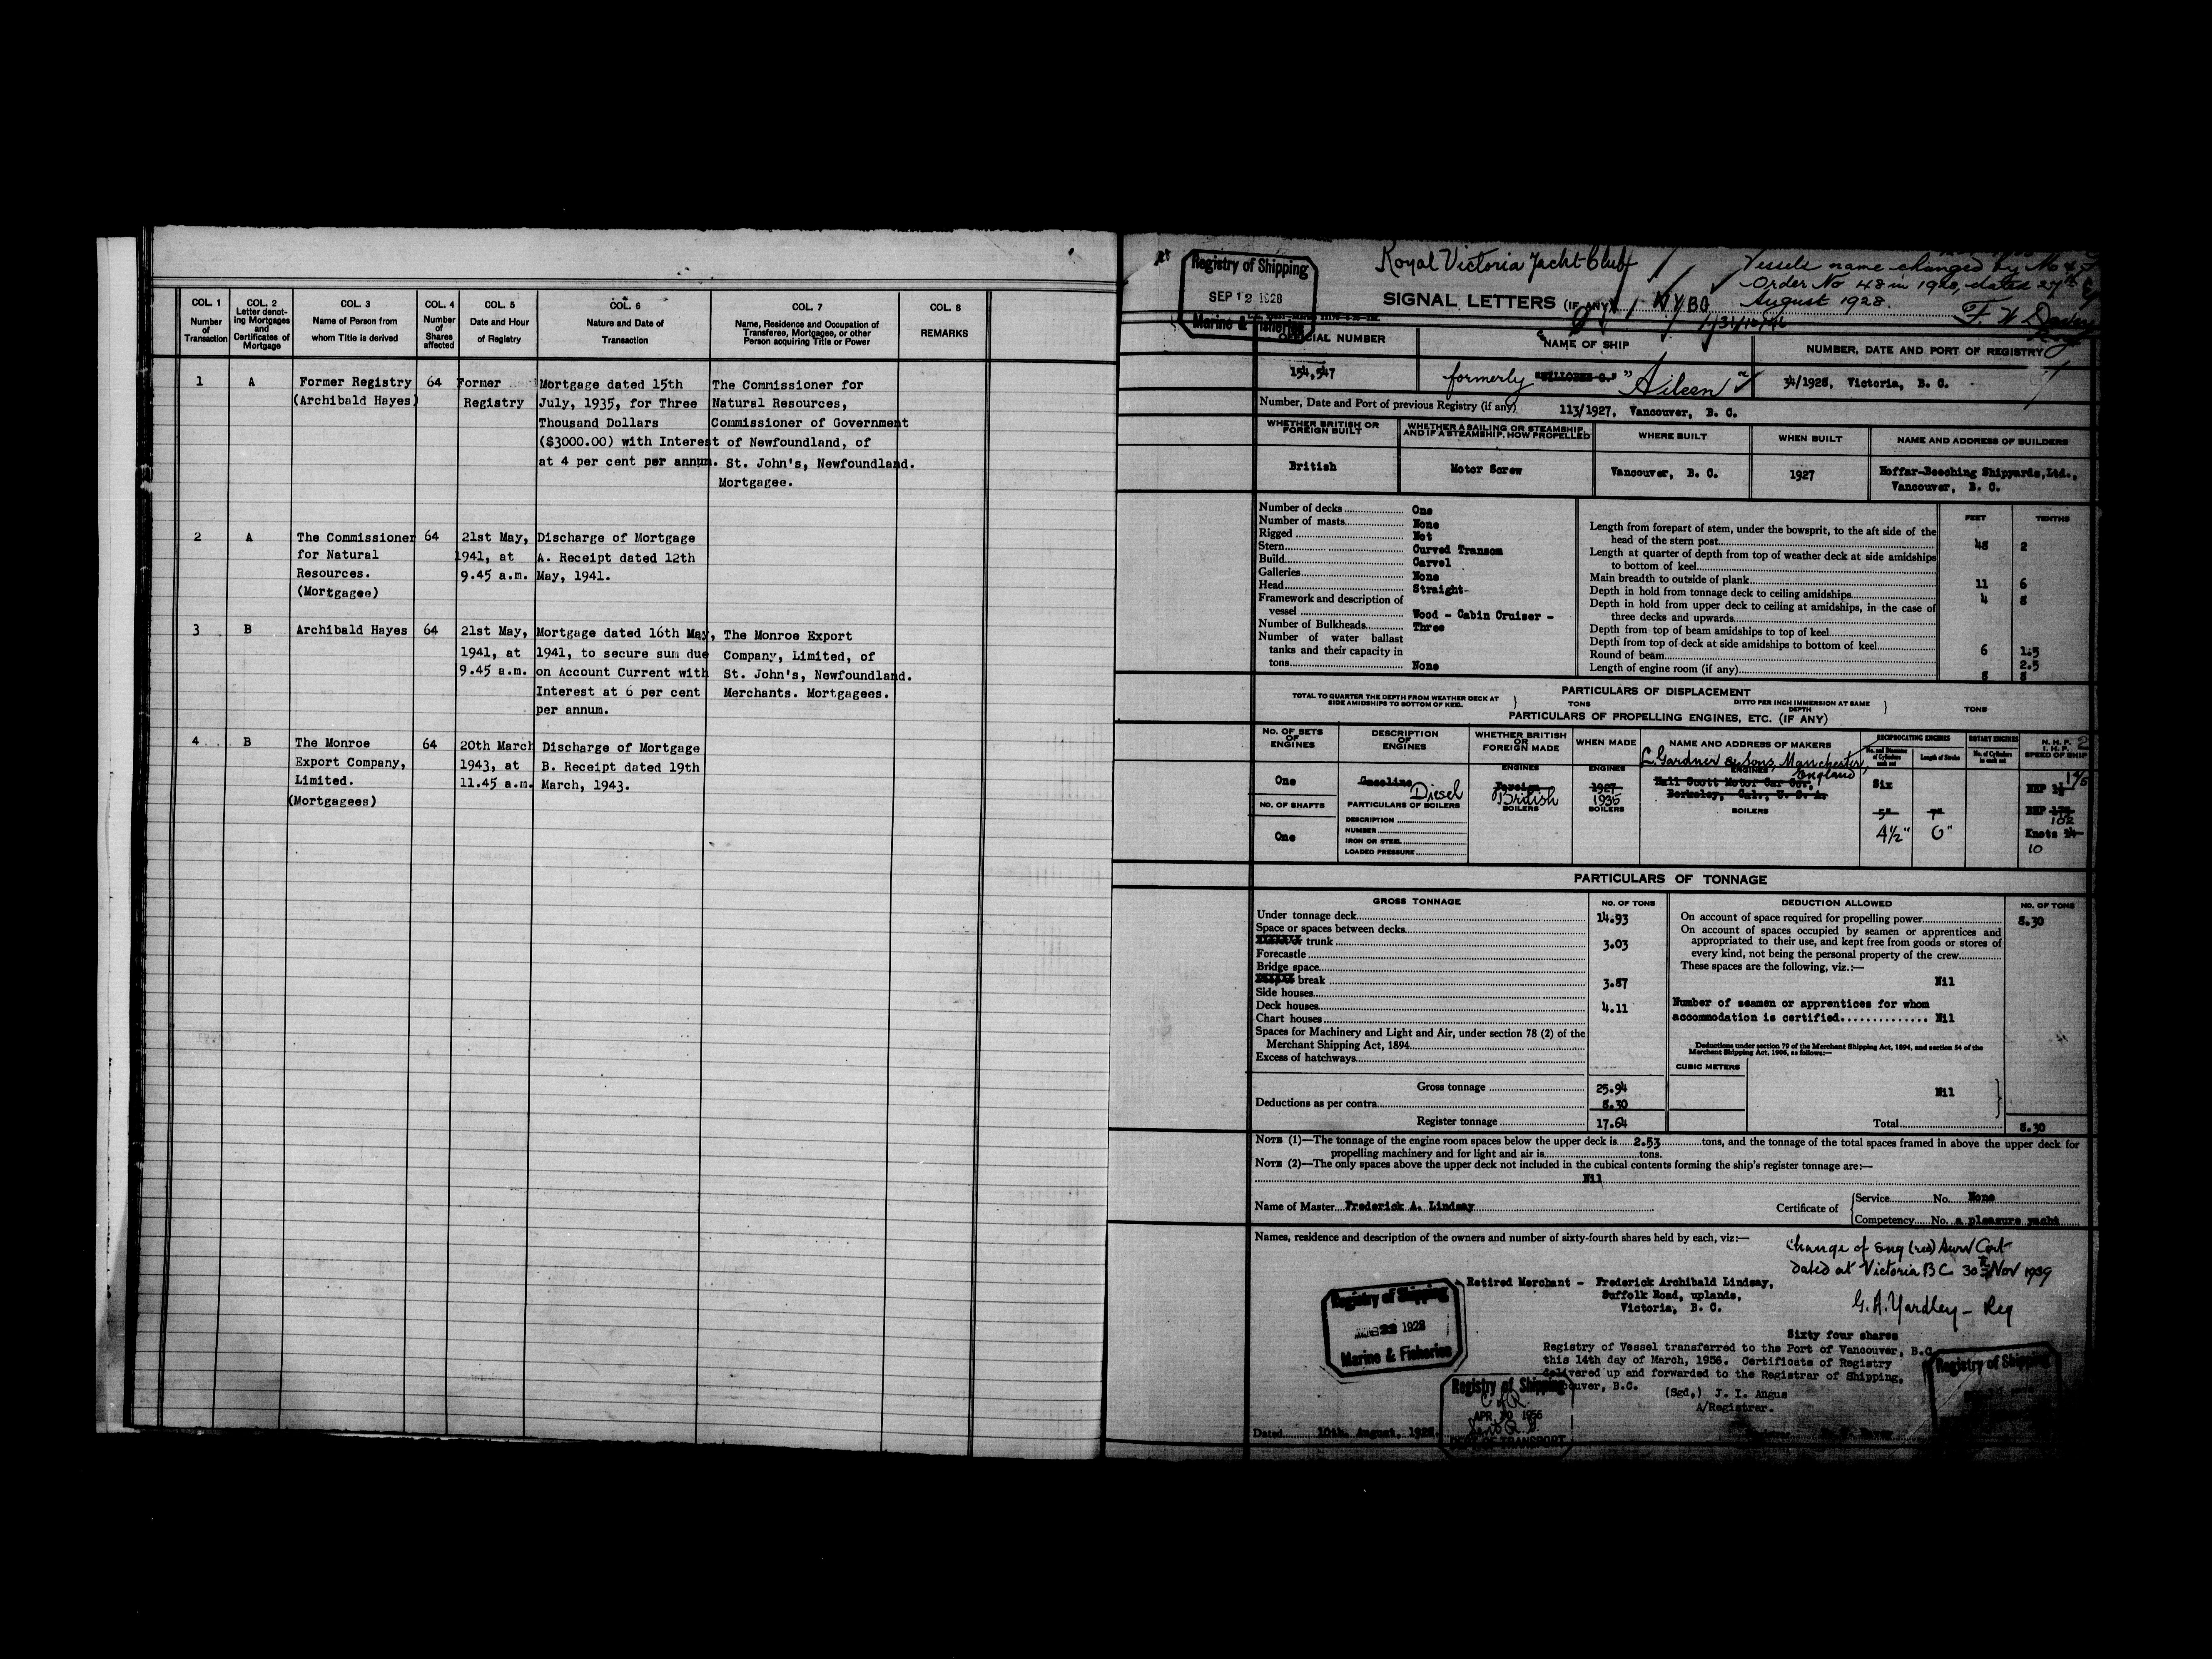 COL. 1
Number
of
Transaction
COL. 2
Letter denot-
ing Mortgages
and
Certificates of
Mortgage
COL. 3
Name of Person from
whom Title is derived
COL. 4
Number
of
Shares
affected
COL. 5
Date and Hour
of Registry
COL. 6
Nature and Date of
Transaction
COL. 7
Name, Residence and Occupation of
Transferee, Mortgagee, or other
Person acquiring Title or Power
COL. 8
REMARKS
1
A
Former Registry
(Archibald Hayes)
64
Former
Registry
Mortgage dated 15th
July, 1935, for Three
Thousand Dollars
($3000.00) with Interest
at 4 per cent per annum.
The Commissioner for
Natural Resources,
Commissioner of Government
of Newfoundland, of
St. John's, Newfoundland.
Mortgagee.
2
A
The Commissioner
for Natural
Resources.
(Mortgagee)
64
21st May,
1941, at
9.45 a.m.
Discharge of Mortgage
A. Receipt dated 12th
May, 1941.
3
B
Archibald Hayes
64
21st May,
1941, at
9.45 a.m.
Mortgage dated 16th May,
1941, to secure sum due
on Account Current with
Interest at 6 per cent
per annum.
The Monroe Export
Company, Limited, of
St. John's, Newfoundland.
Merchants. Mortgagees.
4
B
The Monroe
Export Company,
Limited.
(Mortgagees)
64
20th March
1943, at
11.45 a.m.
Discharge of Mortgage
B. Receipt dated 19th
March, 1943.
Registry of Shipping
SEP 12 1928
Marine & Fisheries
Royal Victoria Yacht Club
Vessels name changed by M &
Order No 48 in 1928, dated 27th
August 1928.
SIGNAL LETTERS (IF ANY)
OFFICIAL NUMBER
NAME OF SHIP
NUMBER, DATE AND PORT OF REGISTRY
154,547
formerly "Aileen"
34/1928, Victoria, B. C.
Number, Date and Port of previous Registry (if any) 113/1927, Vancouver, B. C.
WHETHER BRITISH OR
FOREIGN BUILT
WHETHER A SAILING OR STEAMSHIP,
AND IF A STEAMSHIP, HOW PROPELLED
WHERE BUILT
WHEN BUILT
NAME AND ADDRESS OF BUILDERS
British
Motor Screw
Vancouver, B. C.
1927
Hoffar-Beeching Shipyards, Ltd.,
Vancouver, B. C.
Number of decks One
Number of masts None
Rigged Not
Stern Curved Transom
Build Carvel
Galleries None
Head Straight
Framework and description of
vessel Wood - Cabin Cruiser -
Number of Bulkheads Three
Number of water ballast
tanks and their capacity in
tons None
FEET TENTHS
Length from forepart of stem, under the bowsprit, to the aft side of the
head of the stern post 48 2
Length at quarter of depth from top of weather deck at side amidships
to bottom of keel
Main breadth to outside of plank 11 6
Depth in hold from tonnage deck to ceiling amidships 4 8
Depth in hold from upper deck to ceiling at amidships, in the case of
three decks and upwards
Depth from top of beam amidships to top of keel
Depth from top of deck at side amidships to bottom of keel 6 1.5
Round of beam 2.5
Length of engine room (if any) 8 8
PARTICULARS OF DISPLACEMENT
TOTAL TO QUARTER THE DEPTH FROM WEATHER DECK AT
SIDE AMIDSHIPS TO BOTTOM OF KEEL
TONS
DITTO PER INCH IMMERSION AT SAME
DEPTH
TONS
PARTICULARS OF PROPELLING ENGINES, ETC. (IF ANY)
NO. OF SETS
OF
ENGINES
DESCRIPTION
OF
ENGINES
WHETHER BRITISH
OR
FOREIGN MADE
WHEN MADE
NAME AND ADDRESS OF MAKERS
RECIPROCATING ENGINES
ROTARY ENGINES
No. and Diameter
of Cylinders
each set
Length of Stroke
No. of Cylinders
in each set
N. H. P.
I. H. P.
SPEED OF SHIP
L. Gardner & Sons, Manchester,
England
ENGINES
ENGINES
ENGINES
One
Gasoline Diesel
Foreign
British
1927
1935
Hall Scott Motor Car Co.,
Berkeley, Cal., U. S. A.
Six
NHP
NO. OF SHAFTS
PARTICULARS OF BOILERS
BOILERS
BOILERS
BOILERS
DESCRIPTION
NUMBER
IRON OR STEEL
LOADED PRESSURE
One
5" 7"
4½" 6"
BHP 175
102
Knots
10
PARTICULARS OF TONNAGE
GROSS TONNAGE
NO. OF TONS
Under tonnage deck 14.93
Space or spaces between decks
trunk 3.03
Forecastle
Bridge space
break 3.87
Side houses
Deck houses 4.11
Chart houses
Spaces for Machinery and Light and Air, under section 78 (2) of the
Merchant Shipping Act, 1894
Excess of hatchways
Gross tonnage 25.94
Deductions as per contra 8.30
Register tonnage 17.64
DEDUCTION ALLOWED
NO. OF TONS
On account of space required for propelling power 8.30
On account of spaces occupied by seamen or apprentices and
appropriated to their use, and kept free from goods or stores of
every kind, not being the personal property of the crew
These spaces are the following, viz.:—
Nil
Number of seamen or apprentices for whom
accommodation is certified Nil
Deductions under section 79 of the Merchant Shipping Act, 1894, and section 54 of the
Merchant Shipping Act, 1906, as follows:—
CUBIC METERS
Nil
Total 8.30
NOTE (1)—The tonnage of the engine room spaces below the upper deck is 2.53 tons, and the tonnage of the total spaces framed in above the upper deck for
propelling machinery and for light and air is tons.
NOTE (2)—The only spaces above the upper deck not included in the cubical contents forming the ship's register tonnage are:—
Nil
Name of Master Frederick A. Lindsay
Certificate of
Service No. None
Competency No. a pleasure yacht
Names, residence and description of the owners and number of sixty-fourth shares held by each, viz:—
Change of Eng (red) Surv Cert
dated at Victoria BC 30th Nov 1939
G. A. Yardley - Reg
Retired Merchant - Frederick Archibald Lindsay,
Suffolk Road, uplands,
Victoria, B. C.
Sixty four shares
Registry of Shipping
1928
Marine & Fisheries
Registry of Vessel transferred to the Port of Vancouver, B.C.
this 14th day of March, 1956. Certificate of Registry
delivered up and forwarded to the Registrar of Shipping,
Vancouver, B.C.
(Sgd.) J. I. Angus
A/Registrar.
Registry of Shipping
APR 1956
DEPT OF TRANSPORT
Registry of Shipping
Dated 10th August, 1928.